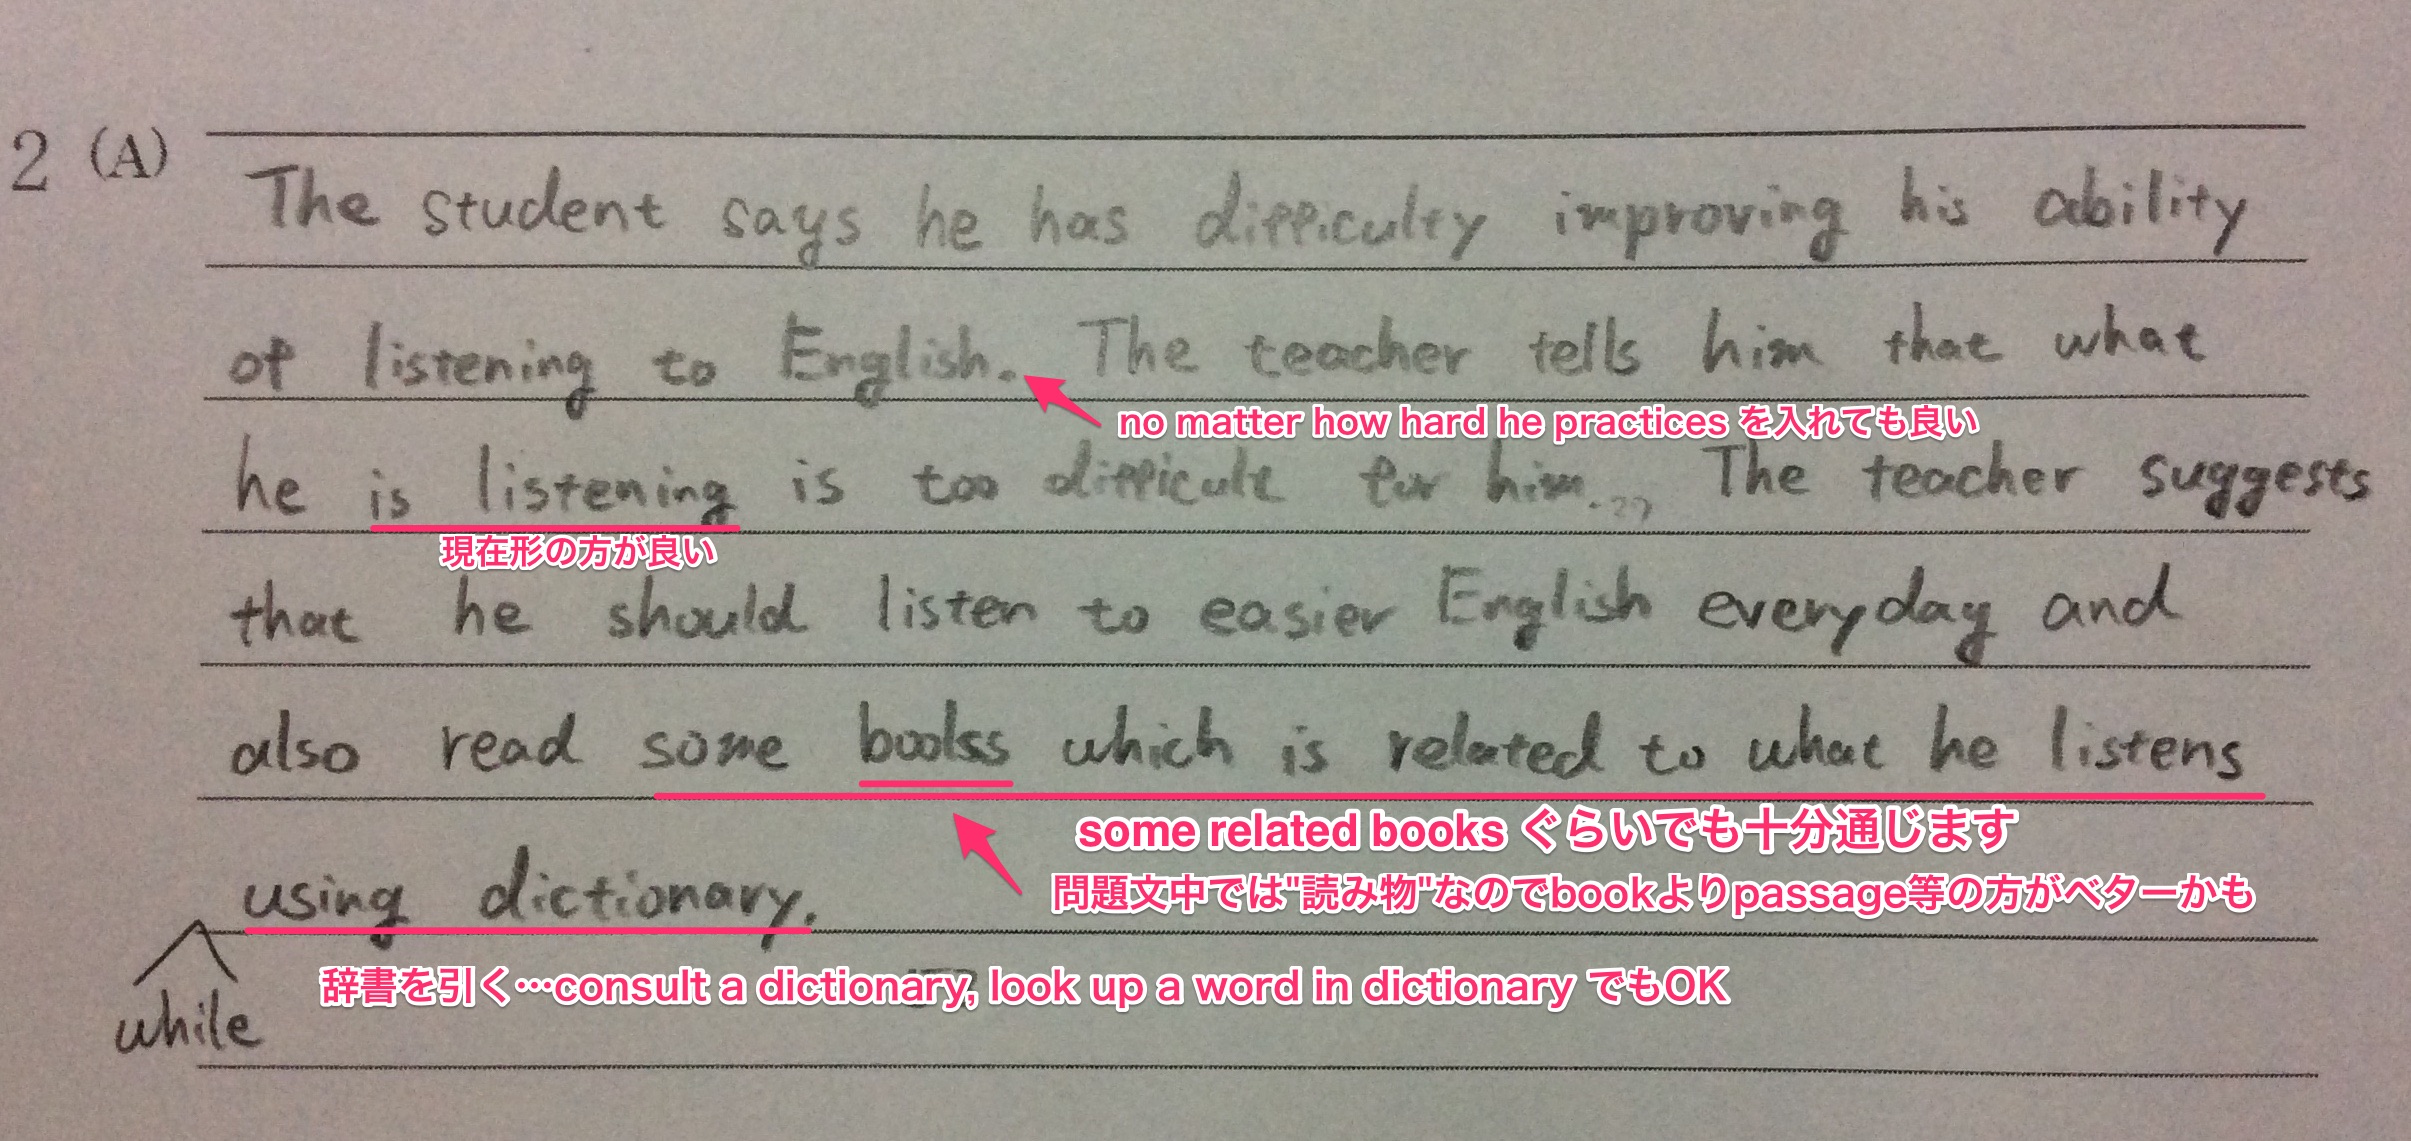 2 (A)
The student says he has difficulty improving his ability
of listening to English. The teacher tells him that what
no matter how hard he practices を入れても良い
he is listening is too difficult for him. The teacher suggests
現在形の方が良い
that he should listen to easier English everyday and
also read some books which is related to what he listens
some related books ぐらいでも十分通じます
問題文中では"読み物"なのでbookよりpassage等の方がベターかも
using dictionary.
辞書を引く…consult a dictionary, look up a word in dictionary でもOK
while